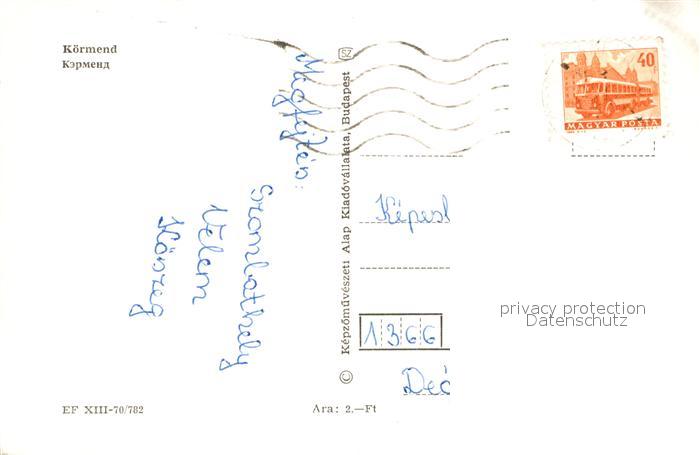 Körmend
Кэрменд
40
MAGYAR POSTA
Megfejtés:
Szombathely
Velem
Kőszeg
© Képzőművészeti Alap Kiadóvállalata, Budapest SZ
Képesl
1366
privacy protection
Datenschutz
EF XIII-70/782
Ara: 2.—Ft